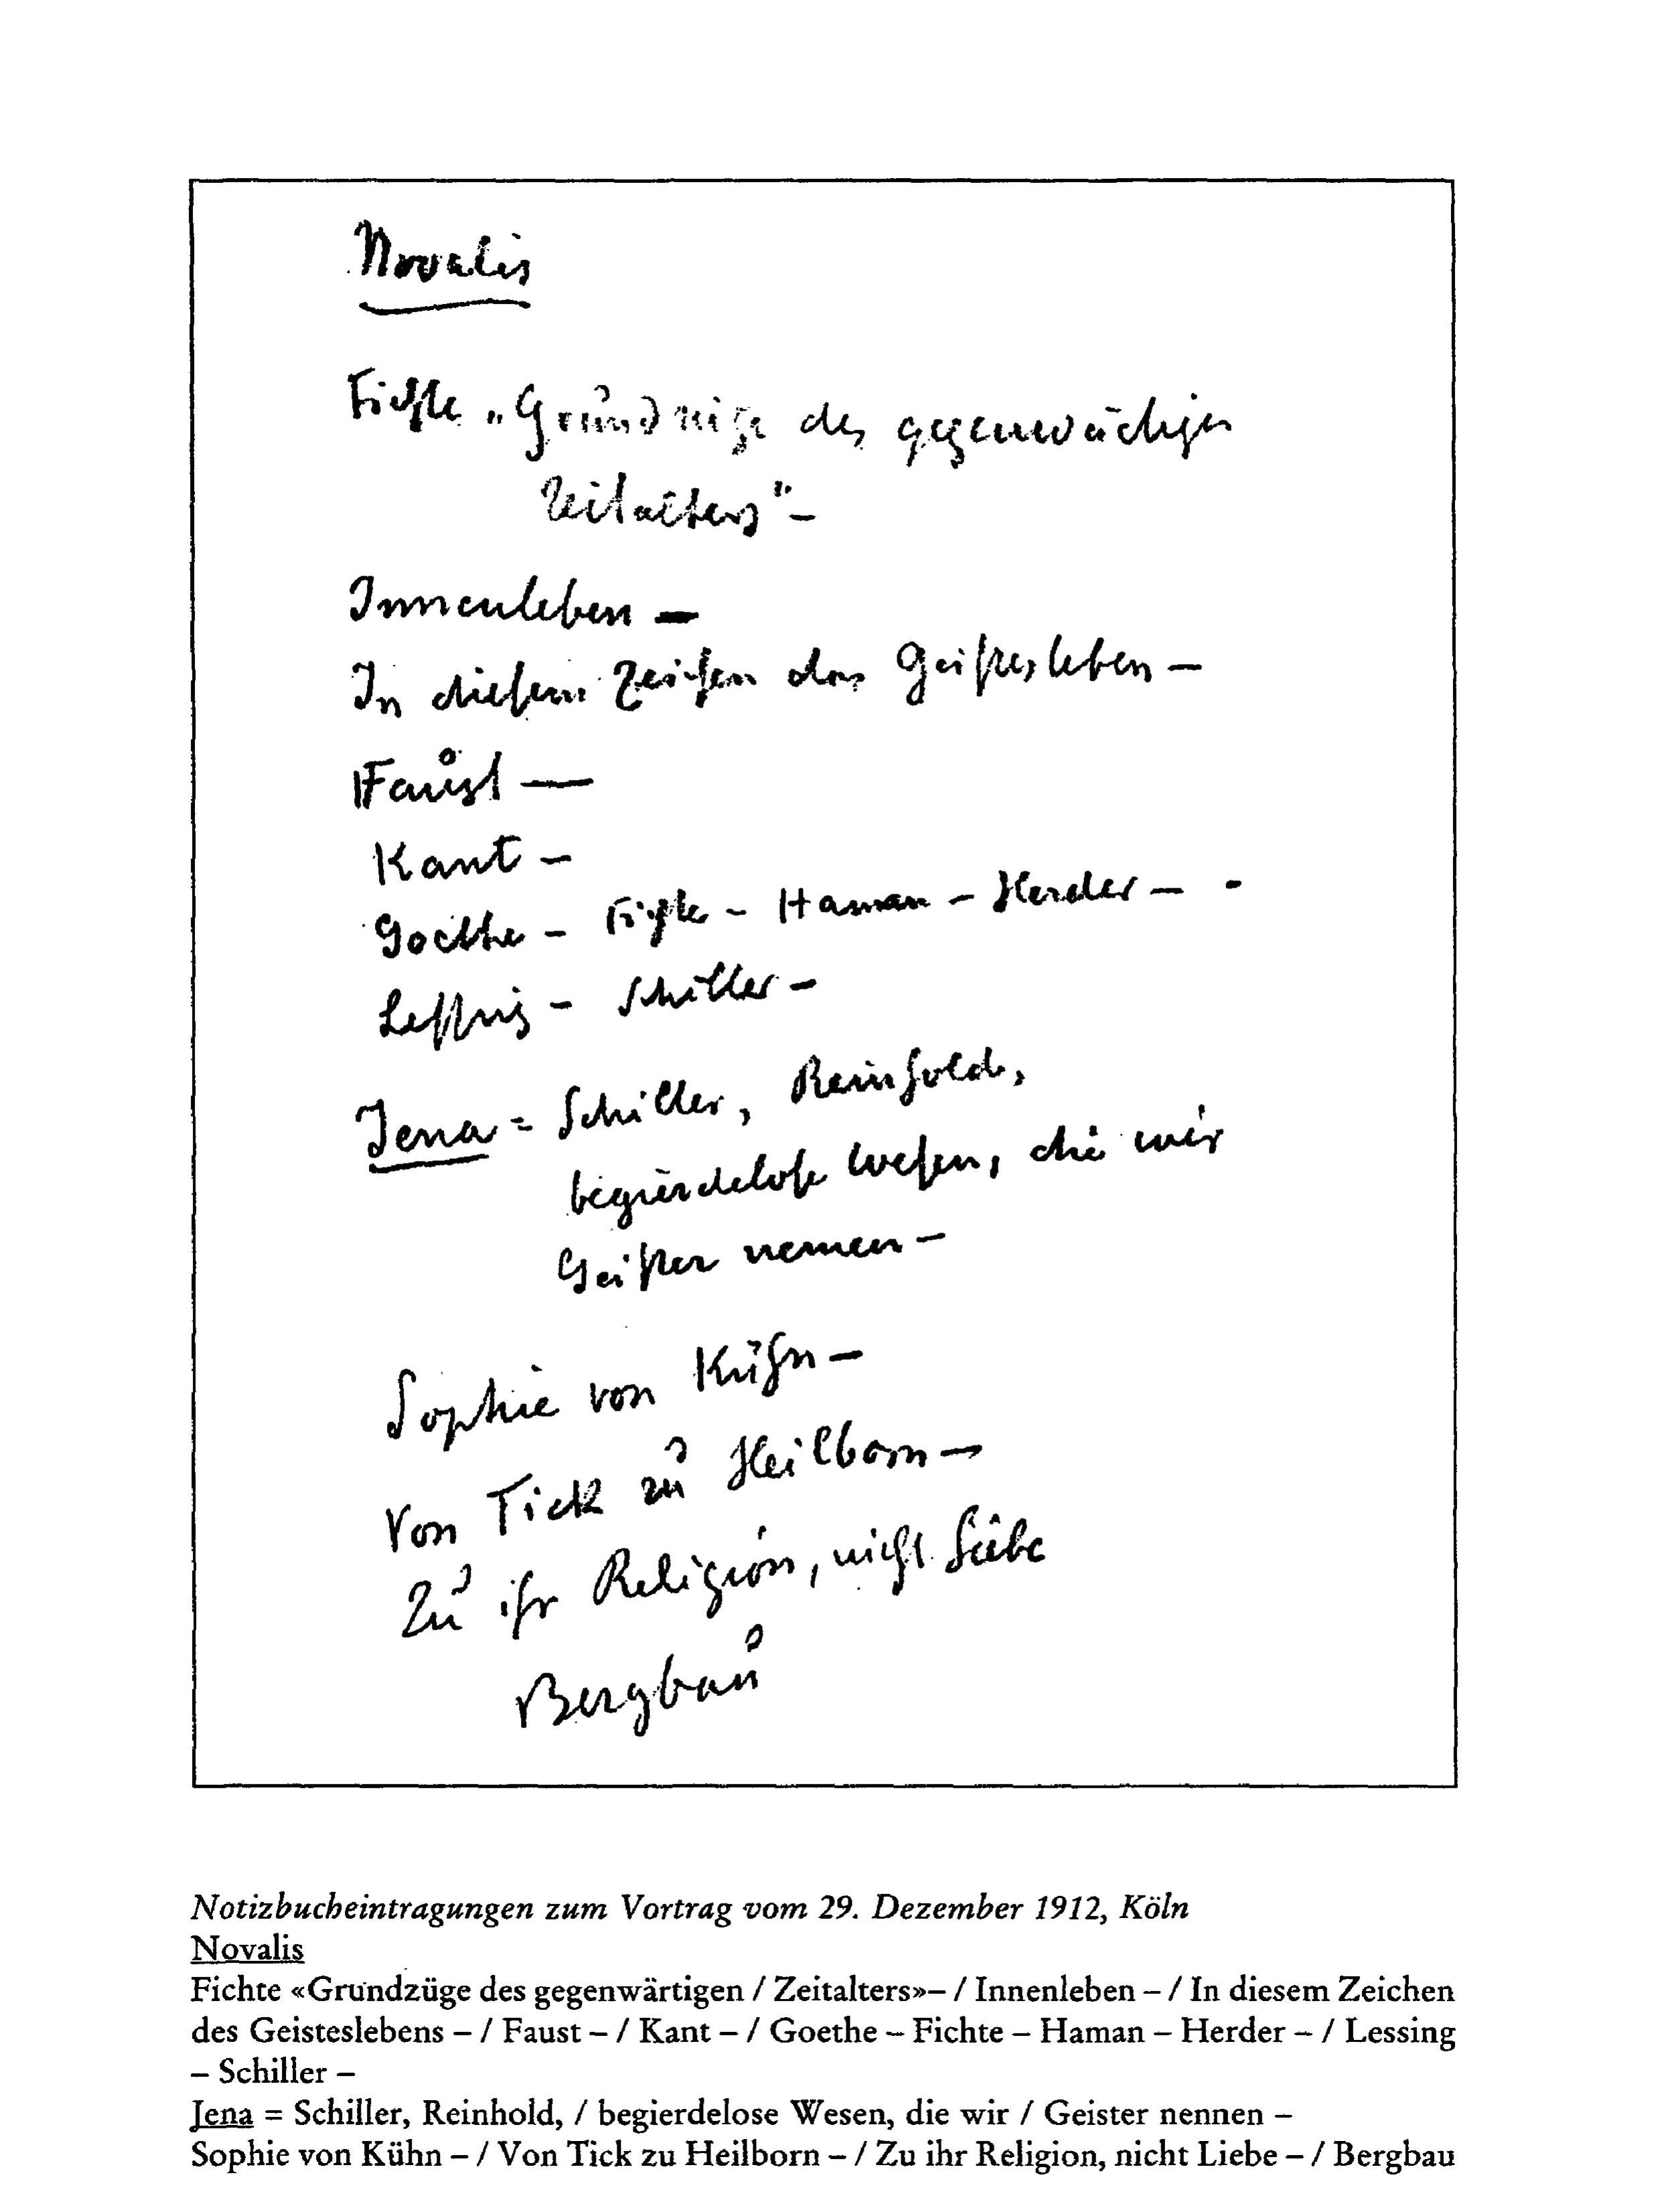 Novalis
Fichte „Grundzüge des gegenwärtigen
Zeitalters" –
Innenleben –
In diesem Zeichen das Geistesleben –
Faust —
Kant –
Goethe – Fichte – Haman – Herder – -
Lessing – Schiller –
Jena = Schiller, Reinhold,
begierdelose Wesen, die wir
Geister nennen –
Sophie von Kühn –
Von Tick zu Heilborn –
Zu ihr Religion, nicht Liebe
Bergbau
Notizbucheintragungen zum Vortrag vom 29. Dezember 1912, Köln
Novalis
Fichte «Grundzüge des gegenwärtigen / Zeitalters»– / Innenleben – / In diesem Zeichen
des Geisteslebens – / Faust – / Kant – / Goethe – Fichte – Haman – Herder – / Lessing
– Schiller –
Jena = Schiller, Reinhold, / begierdelose Wesen, die wir / Geister nennen –
Sophie von Kühn – / Von Tick zu Heilborn – / Zu ihr Religion, nicht Liebe – / Bergbau